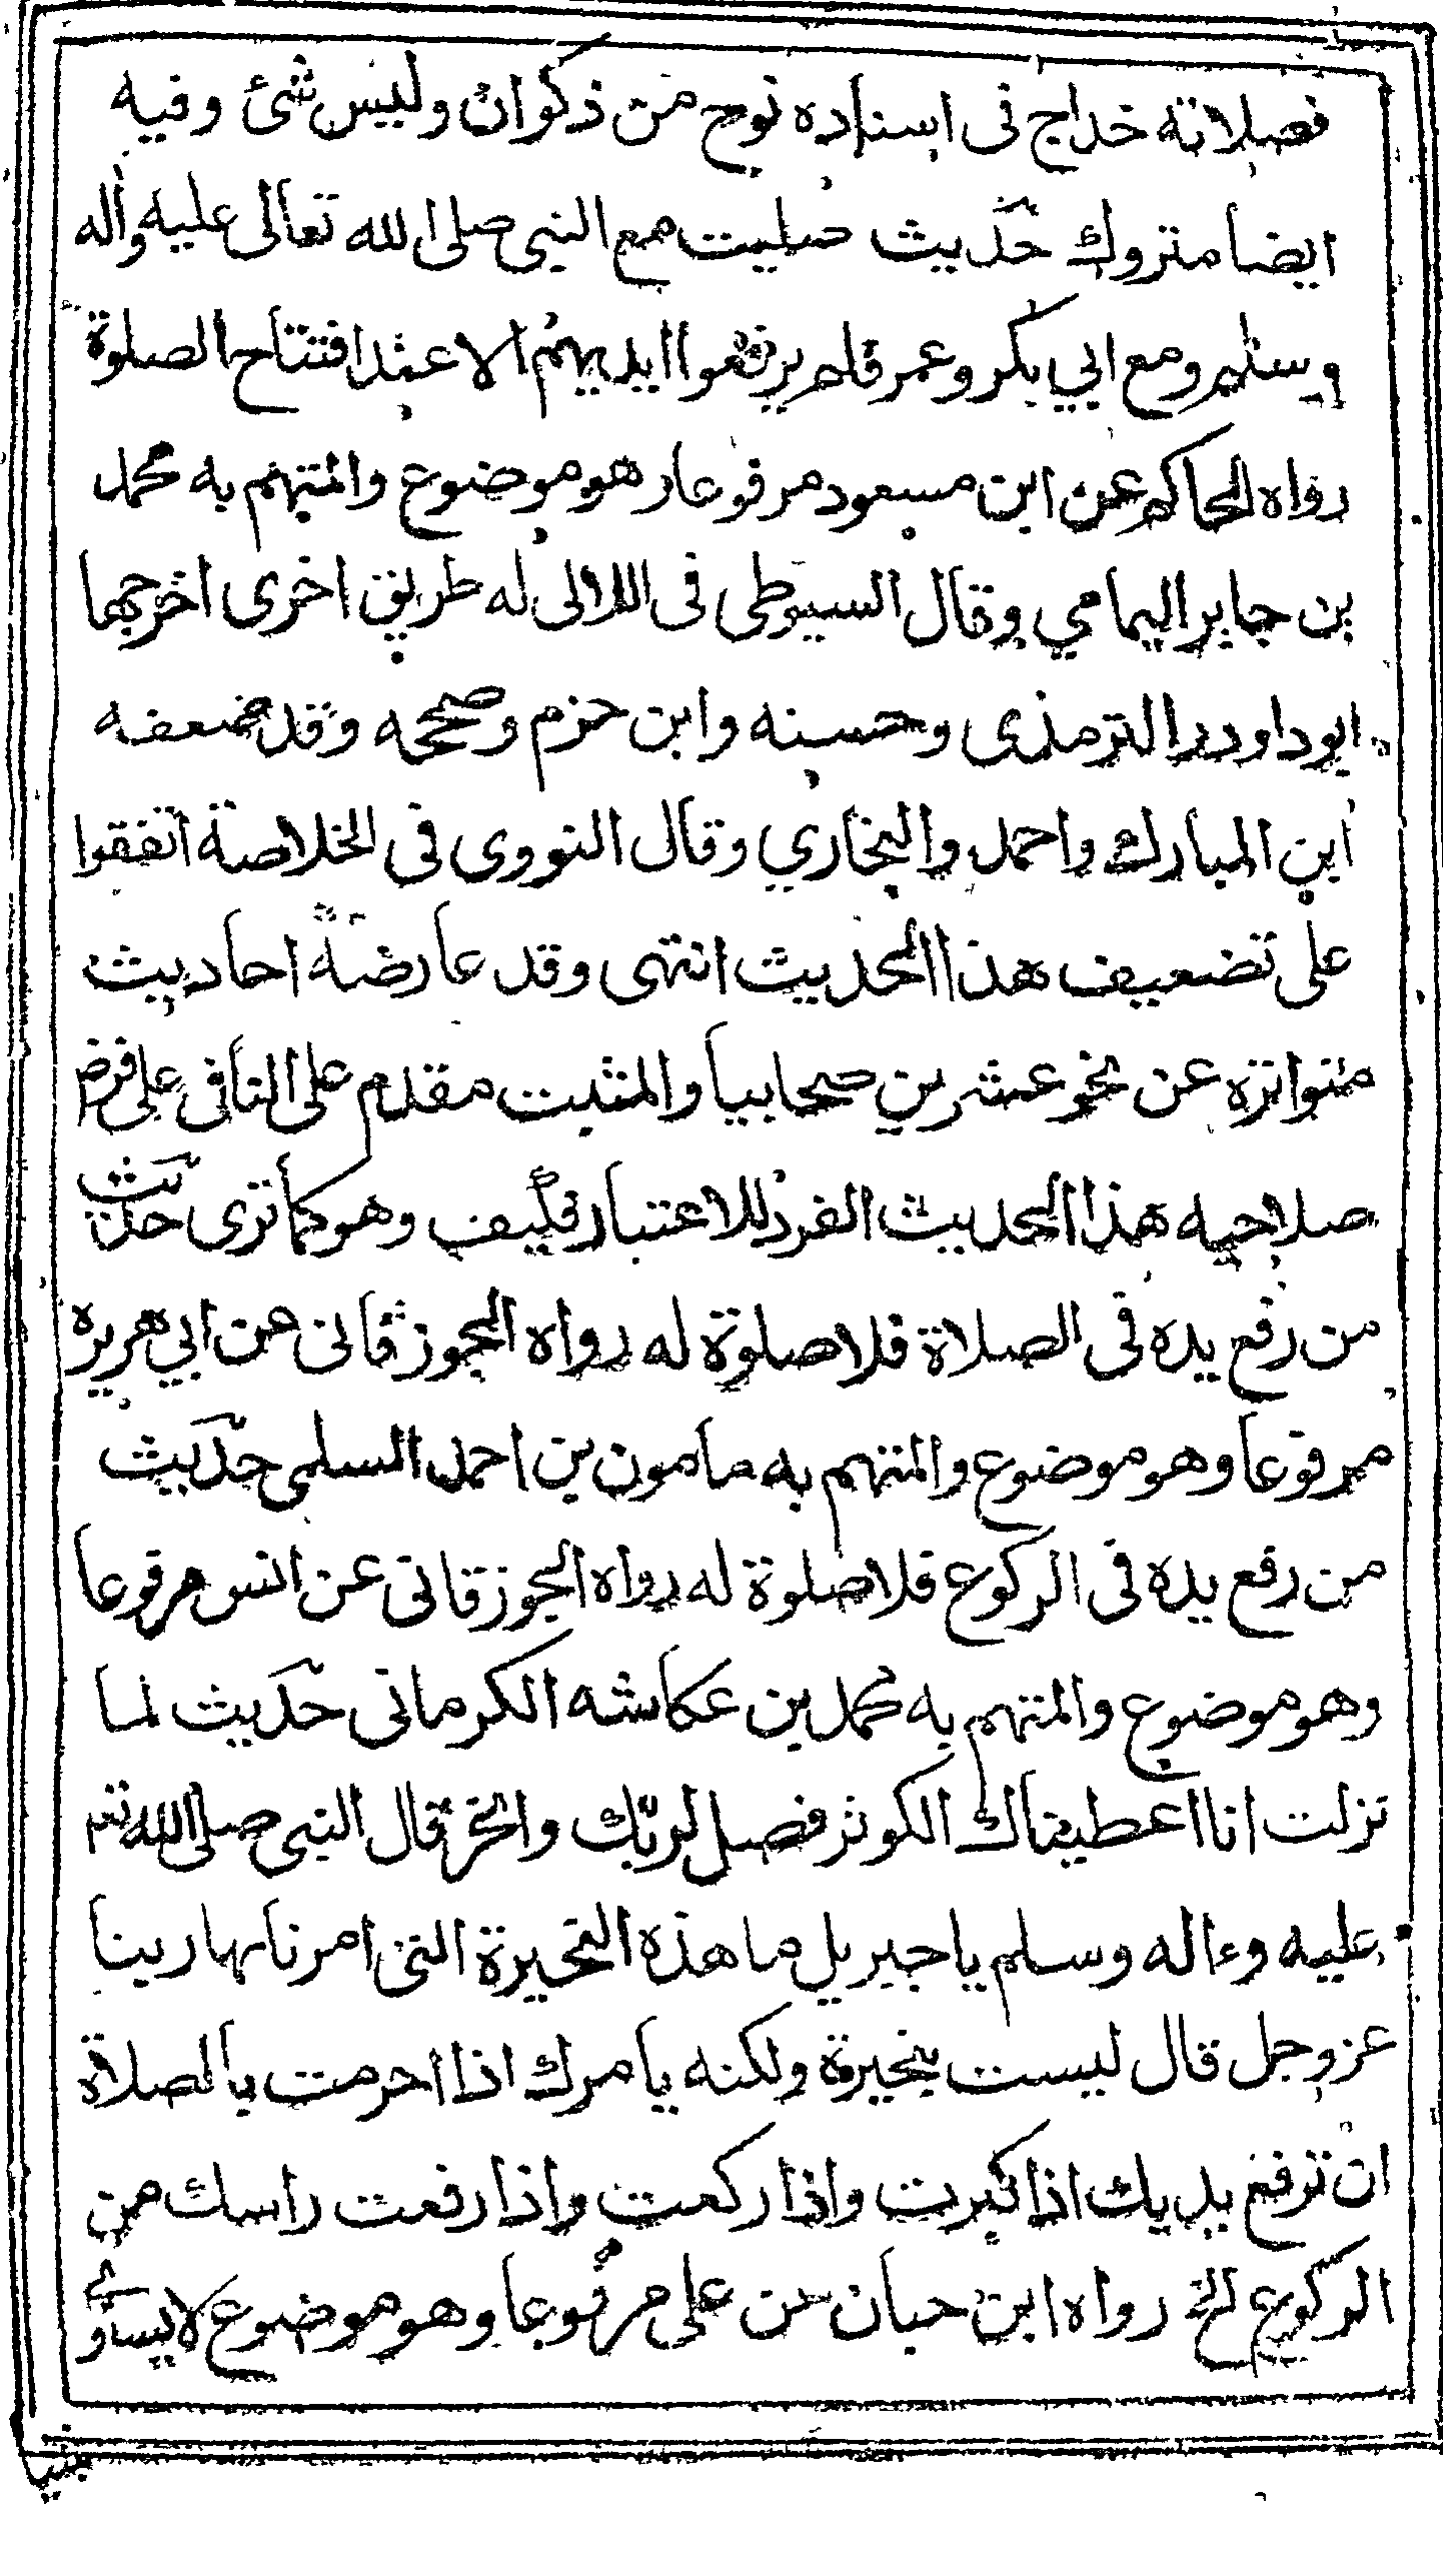 فصلاته خداج فى اسناده نوح من ذكوان وليس شئ وفيه
ايضا متروك حديث صليت مع النبى صلى الله تعالى عليه واله
وسلم ومع ابي بكر وعمر فلم يرفعوا ايديهم الا عند افتتاح الصلوة
رواه الحاكم عن ابن مسعود مرفوعا رهو موضوع والمتهم به محمد
بن جابر اليمامي وقال السيوطى فى اللالى له طريق اخرى اخرجها
ابوداود را الترمذى وحسنه وابن حزم وصححه وقد ضعفه
ابن المبارك واحمد والبخاري وقال النووى فى الخلاصة اتفقوا
على تضعيف هذا الحديث انتهى وقد عارضة احاديث
متواتره عن نحو عشرين صحابيا والمثبت مقدم على النافى على فرض
صلاحيه هذا الحديث الفرد للاعتبار فكيف وهو كما ترى حديث
من رفع يده فى الصلاة فلا صلوة له رواه الجوزقانى عن ابي هريره
مرفوعا وهو موضوع والمتهم به مامون بن احمد السلمى حديث
من رفع يده فى الركوع فلا صلوة له رواه الجوزقانى عن انس مرفوعا
وهو موضوع والمتهم به محمد بن عكاشه الكرمانى حديث لما
نزلت انا اعطيناك الكوثر فصل لربك وانحر قال النبى صلى الله تع
عليه وءاله وسلم يا جبريل ما هذه النحيرة التى امرنا بها ربنا
عز وجل قال ليست بنحيرة ولكنه يا مرك اذا احرمت بالصلاة
ان ترفع يديك اذا كبرت واذا ركعت واذا رفعت راسك من
الركوع الخ رواه ابن حبان عن على مرفوعا وهو موضوع لا يساوي